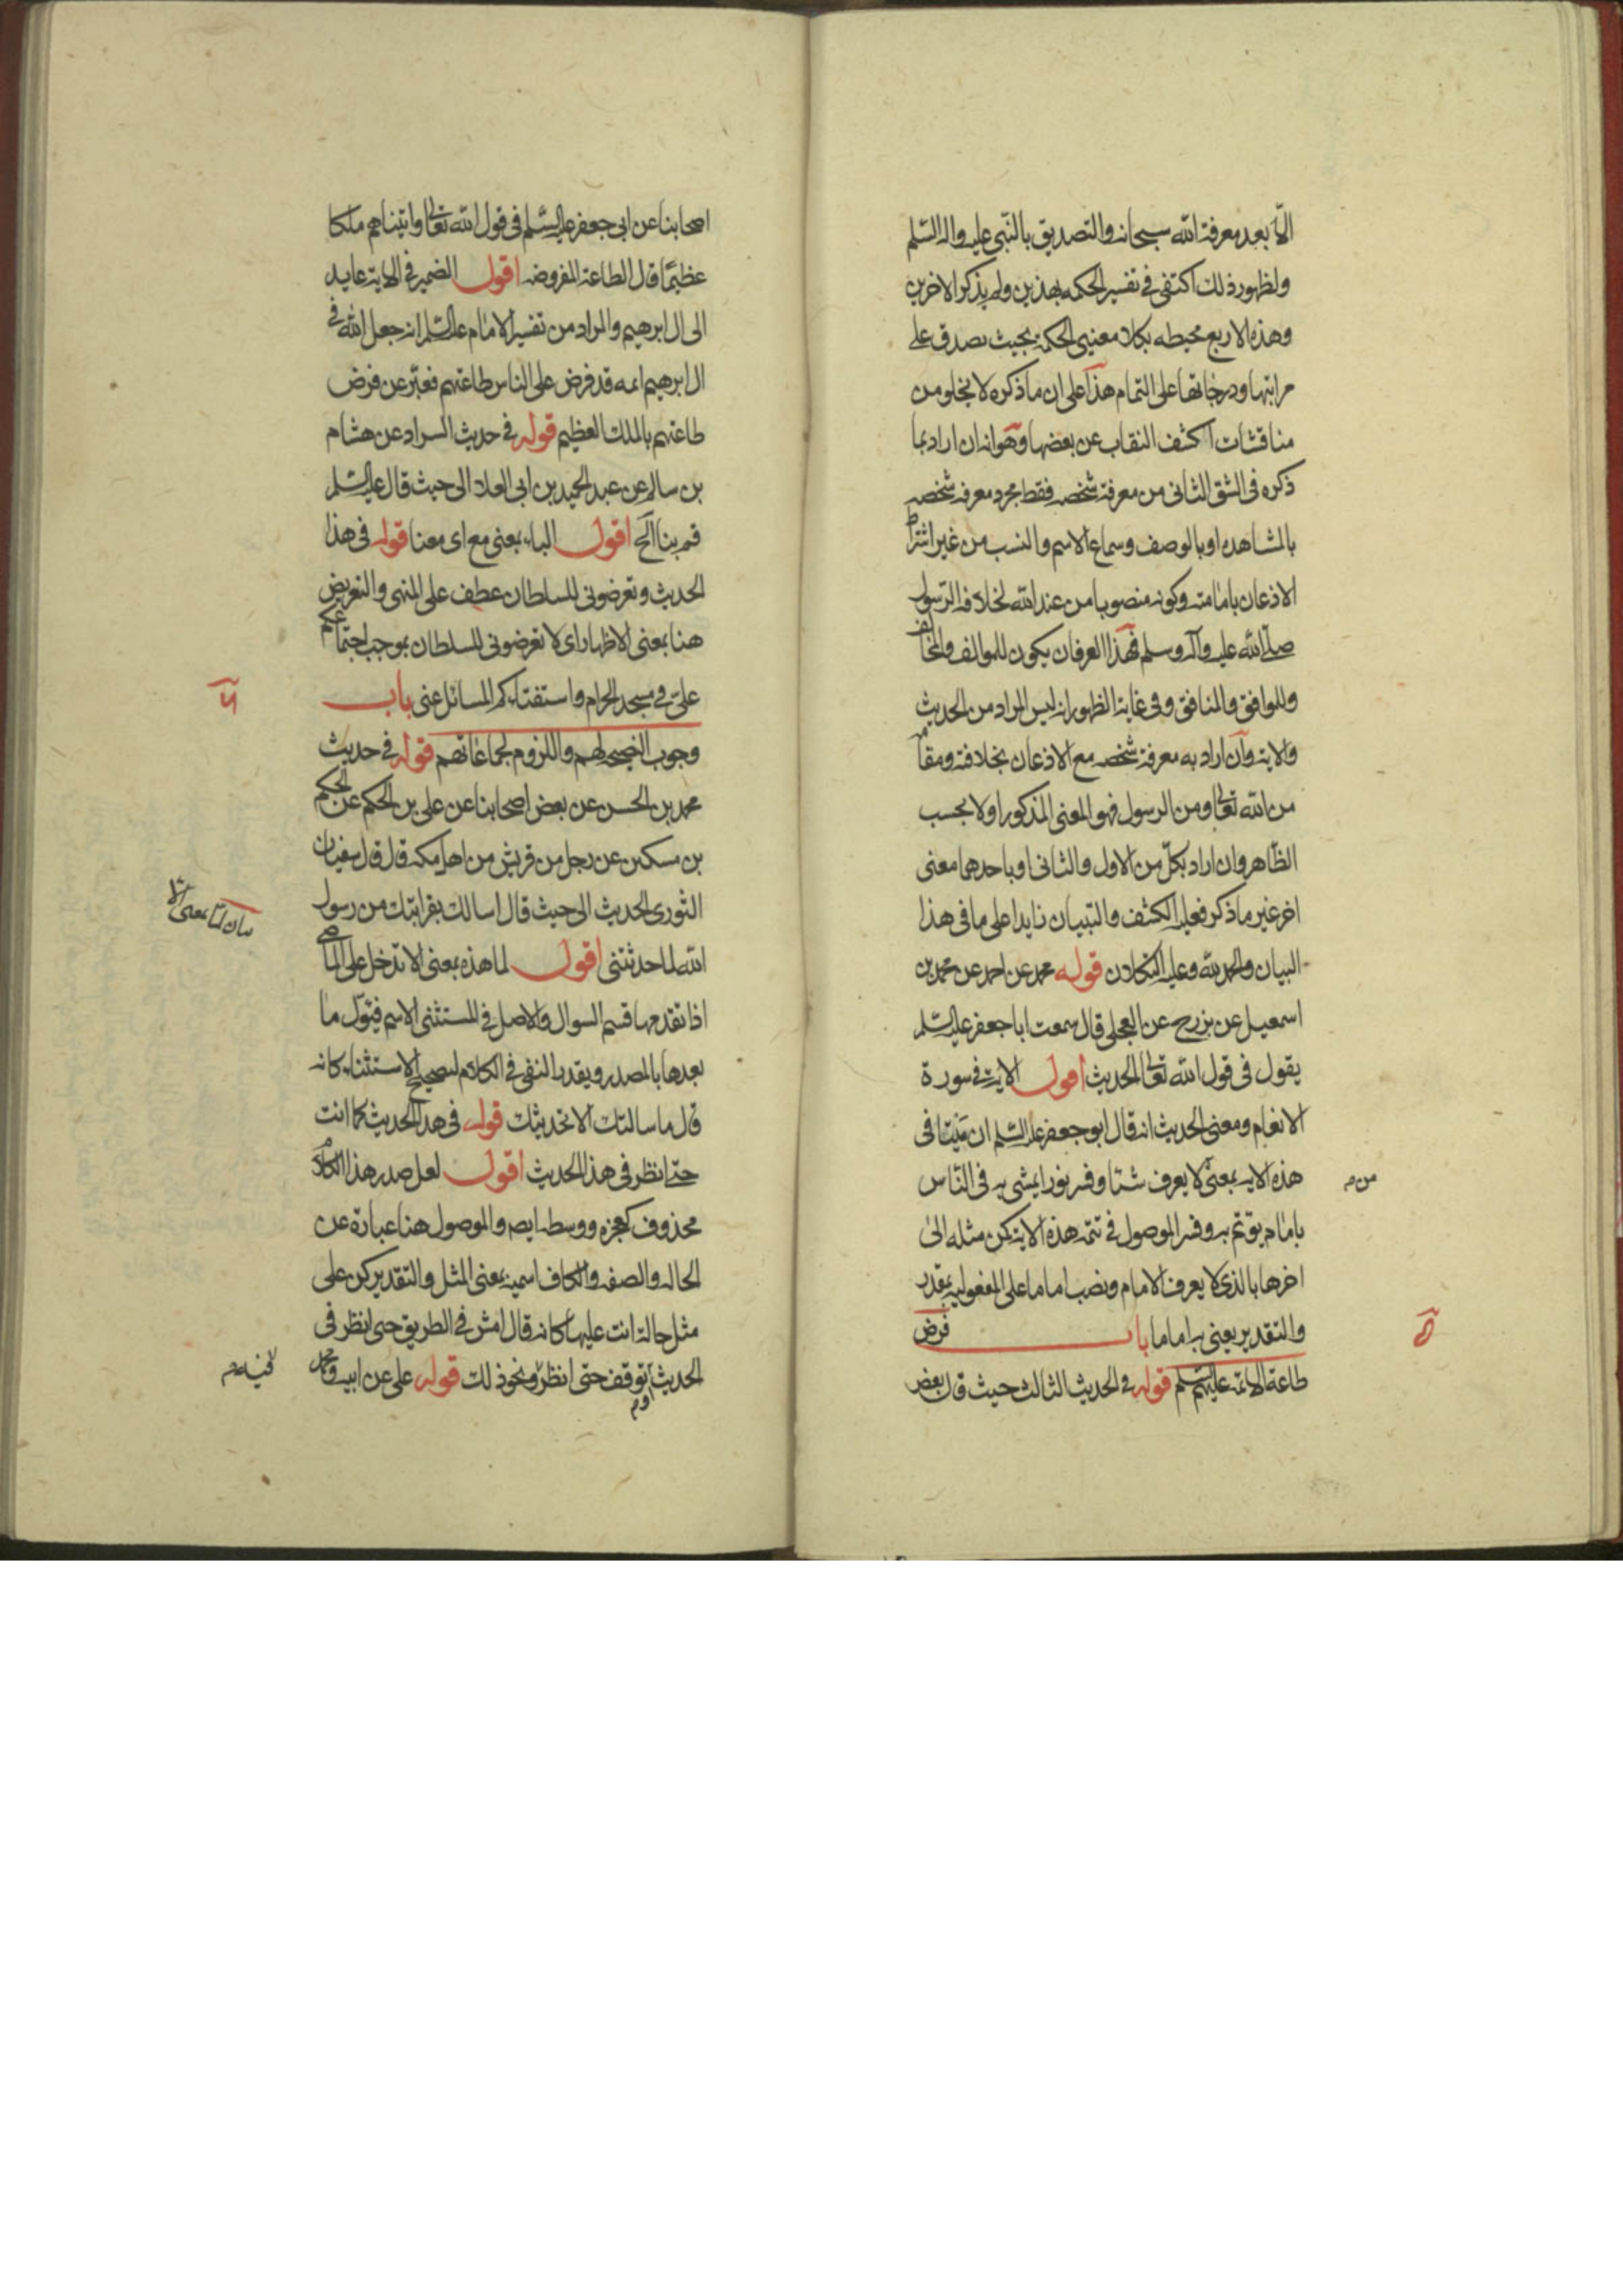 الّا بعد معرفة الله سبحانه والتصديق بالنّبي عليه واله السّلم
ولظهور ذلك اكتفى في تفسير الحكمه بهذين ولم يذكر الاخرين
وهذه الاربع محيطه بكلا معنيي الحكمة بحيث يصدق على
مراتبها ودرجاتها على التمام هذا على ان ما ذكره لا يخلو من
مناقشات اكشف النقاب عن بعضها وهو انه ان اراد بما
ذكره في الشق الثاني من معرفة شخصه فقط مجرد معرفة شخصه
بالمشاهده او بالوصف وسماع الاسم والنسب من غير اشتراط
الاذعان بامامته وكونه منصوبا من عند الله لخلافة الرسول
صلى الله عليه وآله وسلم فهذا العرفان يكون للموالف والمخالف
وللموافق والمنافق وفي غاية الظهور انه ليس المراد من الحديث
والاية وان اراد به معرفة شخصه مع الاذعان بخلافته ومقامه
من الله تعالى ومن الرسول فهو المعنى المذكور اولا بحسب
الظاهر وان اراد بكلّ من الاول والثاني او باحدهما معنى
اخر غير ما ذكر فعليه الكشف والتبيان زايدا على ما في هذا
البيان والحمد لله وعليه التكلان قوله محمد عن احمد عن محمد بن
اسمعيل عن بزرج عن العجلي قال سمعت ابا جعفر عليه السّلم
يقول في قول الله تعالى الحديث اقول الاية في سورة
الانعام ومعنى الحديث انه قال ابو جعفر عليه السّلم ان ميتا في
هذه الاية بمعنى لا يعرف شيئا وفسر نورا يمشي به في النّاس
من م
بامام يؤتم به وفسر الموصول في تتمة هذه الاية كمن مثله الى
اخرها بالذي لا يعرف الامام ونصب اماما على المفعولية بمقدر
والتقدير يعني به اماما باب فرض
طاعة الائمة عليهم السّلم قوله في الحديث الثالث حيث قال بعض
اصحابنا عن ابي جعفر عليه السّلم في قول الله تعالى واتيناهم ملكا
عظيما قال الطاعة المفروضه اقول الضمير في الاية عايد
الى ال ابرهيم والمراد من تفسير الامام عليه السّلم انه جعل الله في
ال ابرهيم ائمه قد فرض على الناس طاعتهم فعبّر عن فرض
طاعتهم بالملك العظيم قوله في حديث السراد عن هشام
بن سالم عن عبد الحميد بن ابي العلا الى حيث قال عليه السّلم
قم بنا الخ اقول الباء بمعنى مع اى معنا قوله في هذا
الحديث وتعرضوني للسلطان عطف على المنهى والتعريض
هنا بمعنى الاظهار اى لا تعرضوني للسلطان بموجب اجتماعكم
علىّ في مسجد الحرام واستفتاءكم المسائل عنى باب
وجوب النصيحه لهم واللزوم لجماعاتهم قوله في حديث
محمد بن الحسن عن بعض اصحابنا عن على بن الحكم عن الحكم
بن مسكين عن رجل من قريش من اهل مكه قال قال سفيان
الثوري الحديث الى حيث قال اسالك بقرابتك من رسول
بيان لمّا بمعنى الّا
الله لما حدثتني اقول لما هذه بمعنى الا تدخل على الماضي
اذا تقدمها قسم السوال والاصل في المستثنى الاسم فيئوّل ما
بعدها بالمصدر ويقدر النفي في الكلام لتصحيح الاستثناء كانه
قال ما سالتك الا تحديثك قوله في هذا الحديث كما انت
حتى انظر في هذا الحديث اقول لعل صدر هذا الكلام
محذوف كعجزه ووسطه ايضا والموصول هنا عبارة عن
الحاله والصفه والكاف اسمية بمعنى المثل والتقدير كن على
مثل حالة انت عليها كانه قال امش في الطريق حتى انظر في
الحديث توقف حتى انظر ونحو ذلك قوله على عن ابيه ومحمد
او م